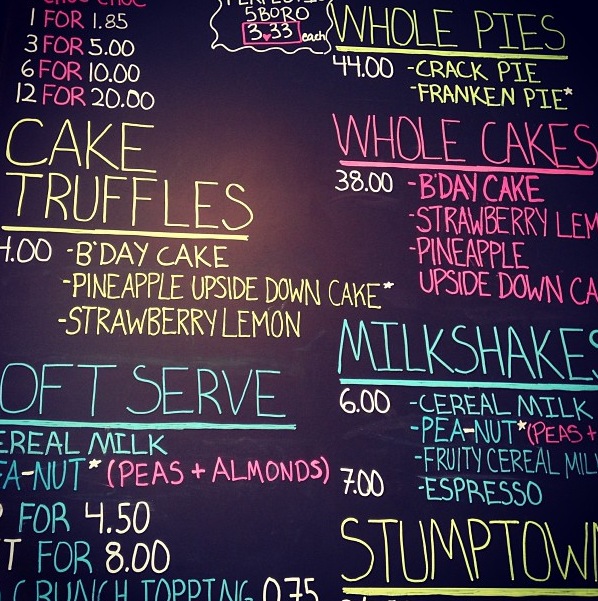 1 FOR 1.85
3 FOR 5.00
6 FOR 10.00
12 FOR 20.00
5BORO
3.33 each
CAKE
TRUFFLES
4.00 -B'DAY CAKE
-PINEAPPLE UPSIDE DOWN CAKE*
-STRAWBERRY LEMON
OFT SERVE
EREAL MILK
A-NUT* (PEAS + ALMONDS)
FOR 4.50
T FOR 8.00
CRUNCH TOPPING 0.75
WHOLE PIES
44.00 -CRACK PIE
-FRANKEN PIE*
WHOLE CAKES
38.00 -B'DAY CAKE
-STRAWBERRY LEM
-PINEAPPLE
UPSIDE DOWN CA
MILKSHAKES
6.00 -CEREAL MILK
-PEA-NUT* (PEAS +
-FRUITY CEREAL MIL
7.00 -ESPRESSO
STUMPTOWN